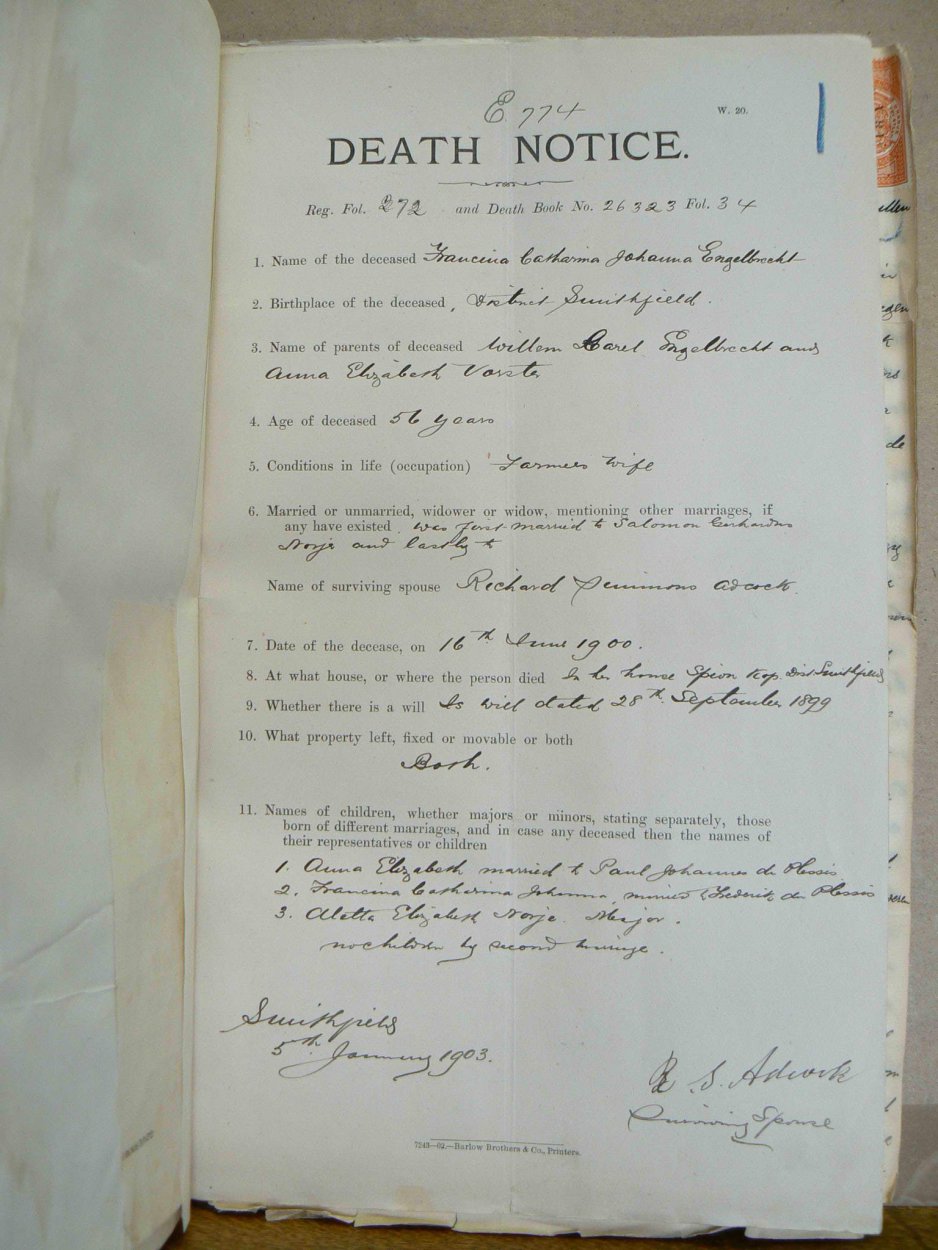 E. 774
W. 20.
DEATH NOTICE.
Reg. Fol. 272 and Death Book No. 26323 Fol. 34
1. Name of the deceased Francina Catharina Johanna Engelbrecht
2. Birthplace of the deceased, District Smithfield.
3. Name of parents of deceased Willem Carel Engelbrecht and
Anna Elizabeth Vorster
4. Age of deceased 56 years
5. Conditions in life (occupation) Farmers Wife
6. Married or unmarried, widower or widow, mentioning other marriages, if
any have existed was first married to Salomon Gerhardus
Norje and lastly to
Name of surviving spouse Richard Simmons Adcock.
7. Date of the decease, on 16th June 1900.
8. At what house, or where the person died In her house Spion Kop. Dist. Smithfield
9. Whether there is a will Is will dated 28th September 1899
10. What property left, fixed or movable or both
Both.
11. Names of children, whether majors or minors, stating separately, those
born of different marriages, and in case any deceased then the names of
their representatives or children
1. Anna Elizabeth married to Paul Johannes du Plessis
2. Francina Catharina Johanna, married to Frederik du Plessis
3. Aletta Elizabeth Norje. Major.
no children by second marriage.
Smithfield
5th January 1903.
R. S. Adcock
Surviving Spouse
7243—02.—Barlow Brothers & Co., Printers.